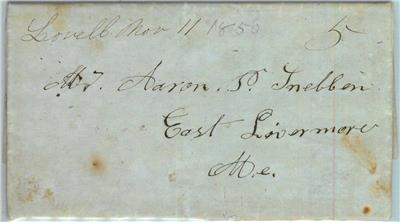 Lovell Nov 11 1850 5
Mr. Aaron P. Snebben
East Livermore
Me.